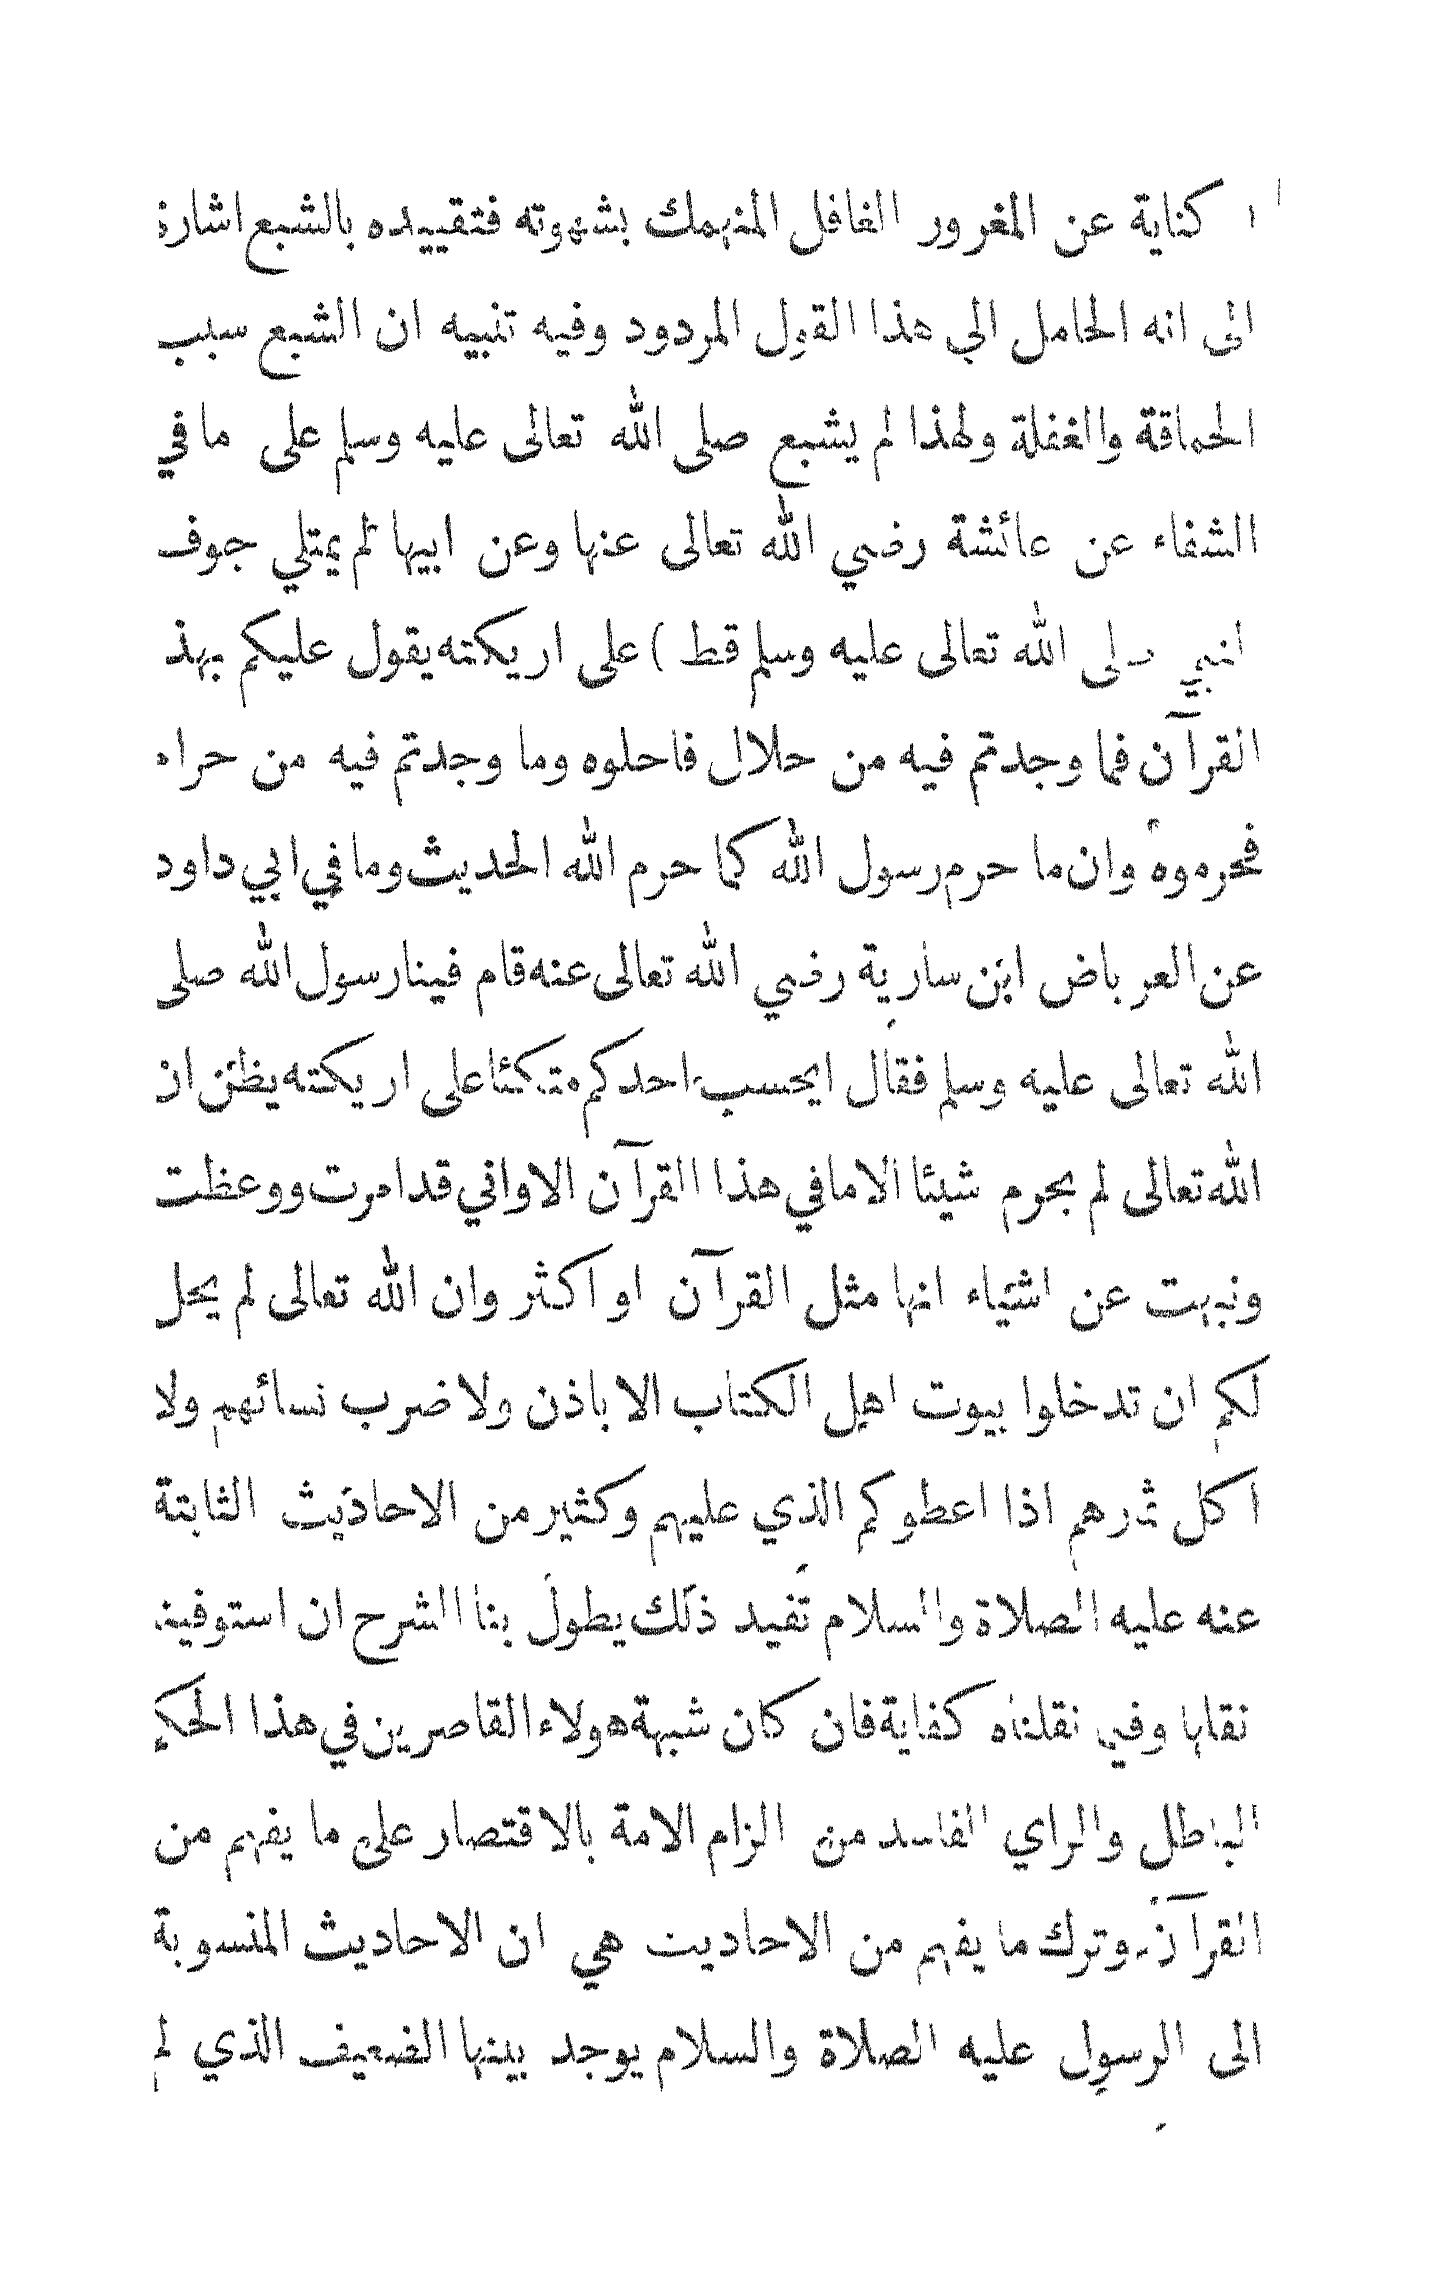 كناية عن المغرور الغافل المنهمك بشهوته فتقييده بالشبع اشارة
الى انه الحامل الى هذا القول المردود وفيه تنبيه ان الشبع سبب
الحماقة والغفلة ولهذا لم يشبع صلى الله تعالى عليه وسلم على ما في
الشفاء عن عائشة رضي الله تعالى عنها وعن ابيها لم يمتلي جوف
النبي صلى الله تعالى عليه وسلم قط ) على اريكته يقول عليكم بهذ
القرآن فما وجدتم فيه من حلال فاحلوه وما وجدتم فيه من حرام
فحرموه وان ما حرم رسول الله كما حرم الله الحديث وما في ابي داود
عن العرباض ابن سارية رضي الله تعالى عنه قام فينا رسول الله صلى
الله تعالى عليه وسلم فقال ايحسب احدكم متكئا على اريكته يظن ان
الله تعالى لم يحرم شيئا الا ما في هذا القرآن الا واني قد امرت ووعظت
ونهيت عن اشياء انها مثل القرآن او اكثر وان الله تعالى لم يحل
لكم ان تدخلوا بيوت اهل الكتاب الا باذن ولا ضرب نسائهم ولا
اكل ثمارهم اذا اعطوكم الذي عليهم وكثير من الاحاديث الثابتة
عنه عليه الصلاة والسلام تفيد ذلك يطول بنا الشرح ان استوفينا
نقلها وفي نقلناه كفاية فان كان شبهة هولاء القاصرين في هذا الحكم
الباطل والراي الفاسد من الزام الامة بالاقتصار على ما يفهم من
القرآن وترك ما يفهم من الاحاديث هي ان الاحاديث المنسوبة
الى الرسول عليه الصلاة والسلام يوجد بينها الضعيف الذي لم